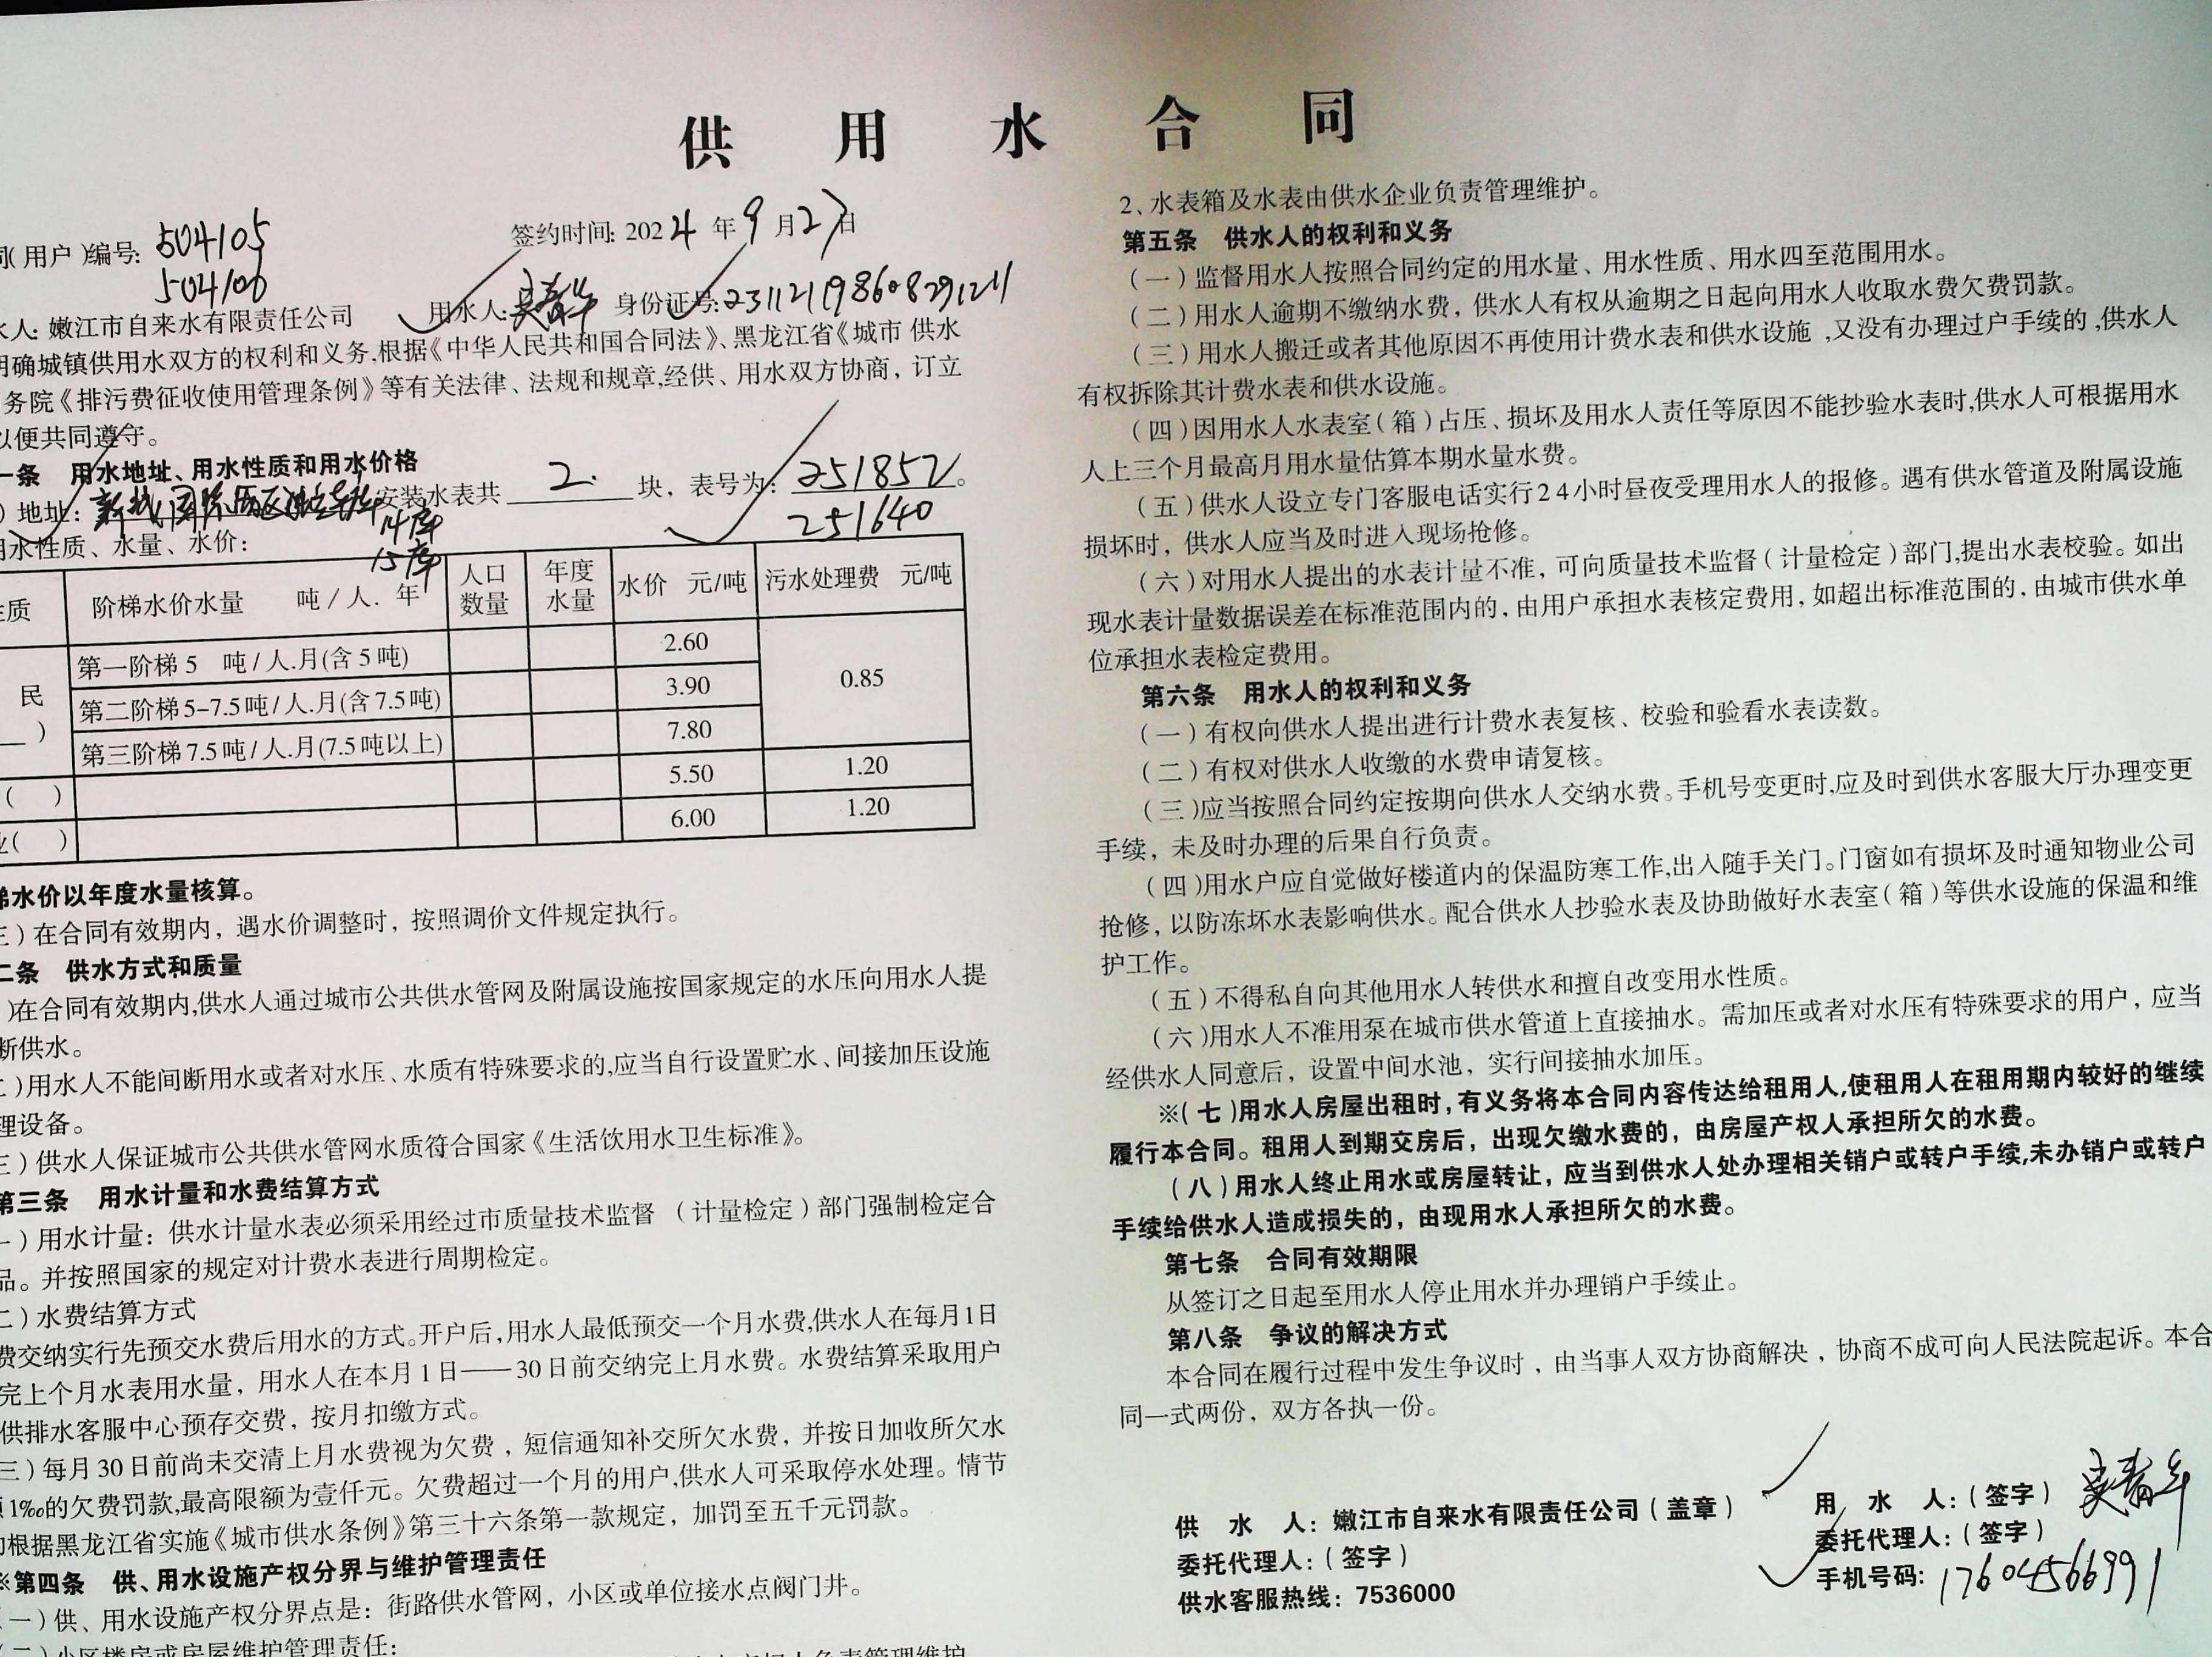 供 用 水 合 同
签约时间: 2024 年 9 月 27 日
同(用户)编号: 504105
504106
水人: 嫩江市自来水有限责任公司 用水人: 吴春华 身份证号:
明确城镇供用水双方的权利和义务,根据《中华人民共和国合同法》、黑龙江省《城市 供水
务院《排污费征收使用管理条例》等有关法律、法规和规章,经供、用水双方协商，订立
以便共同遵守。
一条 用水地址、用水性质和用水价格
)地址: 新城国际 安装水表共 2 块，表号为: 251852。
14库 251640
用水性质、水量、水价:
15库
性质 阶梯水价水量 吨/人.年 人口数量 年度水量 水价 元/吨 污水处理费 元/吨
民 第一阶梯 5 吨/人.月(含5吨) 2.60 0.85
第二阶梯5-7.5吨/人.月(含7.5吨) 3.90
) 第三阶梯7.5吨/人.月(7.5吨以上) 7.80
( ) 5.50 1.20
业( ) 6.00 1.20
梯水价以年度水量核算。
三)在合同有效期内，遇水价调整时，按照调价文件规定执行。
二条 供水方式和质量
)在合同有效期内,供水人通过城市公共供水管网及附属设施按国家规定的水压向用水人提
断供水。
二)用水人不能间断用水或者对水压、水质有特殊要求的,应当自行设置贮水、间接加压设施
理设备。
三)供水人保证城市公共供水管网水质符合国家《生活饮用水卫生标准》。
第三条 用水计量和水费结算方式
一)用水计量：供水计量水表必须采用经过市质量技术监督 (计量检定)部门强制检定合
品。并按照国家的规定对计费水表进行周期检定。
二)水费结算方式
费交纳实行先预交水费后用水的方式。开户后,用水人最低预交一个月水费,供水人在每月1日
完上个月水表用水量，用水人在本月1日——30日前交纳完上月水费。水费结算采取用户
供排水客服中心预存交费，按月扣缴方式。
三)每月30日前尚未交清上月水费视为欠费，短信通知补交所欠水费，并按日加收所欠水
1‰的欠费罚款,最高限额为壹仟元。欠费超过一个月的用户,供水人可采取停水处理。情节
根据黑龙江省实施《城市供水条例》第三十六条第一款规定，加罚至五千元罚款。
※第四条 供、用水设施产权分界与维护管理责任
(一)供、用水设施产权分界点是：街路供水管网，小区或单位接水点阀门井。
(二)小区楼房或房屋维护管理责任:
2、水表箱及水表由供水企业负责管理维护。
第五条 供水人的权利和义务
(一)监督用水人按照合同约定的用水量、用水性质、用水四至范围用水。
(二)用水人逾期不缴纳水费，供水人有权从逾期之日起向用水人收取水费欠费罚款。
(三)用水人搬迁或者其他原因不再使用计费水表和供水设施,又没有办理过户手续的,供水人
有权拆除其计费水表和供水设施。
(四)因用水人水表室(箱)占压、损坏及用水人责任等原因不能抄验水表时,供水人可根据用水
人上三个月最高月用水量估算本期水量水费。
(五)供水人设立专门客服电话实行24小时昼夜受理用水人的报修。遇有供水管道及附属设施
损坏时，供水人应当及时进入现场抢修。
(六)对用水人提出的水表计量不准，可向质量技术监督(计量检定)部门,提出水表校验。如出
现水表计量数据误差在标准范围内的，由用户承担水表核定费用，如超出标准范围的，由城市供水单
位承担水表检定费用。
第六条 用水人的权利和义务
(一)有权向供水人提出进行计费水表复核、校验和验看水表读数。
(二)有权对供水人收缴的水费申请复核。
(三)应当按照合同约定按期向供水人交纳水费。手机号变更时,应及时到供水客服大厅办理变更
手续，未及时办理的后果自行负责。
(四)用水户应自觉做好楼道内的保温防寒工作,出入随手关门。门窗如有损坏及时通知物业公司
抢修，以防冻坏水表影响供水。配合供水人抄验水表及协助做好水表室(箱)等供水设施的保温和维
护工作。
(五)不得私自向其他用水人转供水和擅自改变用水性质。
(六)用水人不准用泵在城市供水管道上直接抽水。需加压或者对水压有特殊要求的用户，应当
经供水人同意后，设置中间水池，实行间接抽水加压。
※(七)用水人房屋出租时,有义务将本合同内容传达给租用人,使租用人在租用期内较好的继续
履行本合同。租用人到期交房后，出现欠缴水费的，由房屋产权人承担所欠的水费。
(八)用水人终止用水或房屋转让，应当到供水人处办理相关销户或转户手续,未办销户或转户
手续给供水人造成损失的，由现用水人承担所欠的水费。
第七条 合同有效期限
从签订之日起至用水人停止用水并办理销户手续止。
第八条 争议的解决方式
本合同在履行过程中发生争议时，由当事人双方协商解决，协商不成可向人民法院起诉。本合
同一式两份，双方各执一份。
供 水 人：嫩江市自来水有限责任公司(盖章)
委托代理人：(签字)
供水客服热线：7536000
用 水 人：(签字) 吴春华
委托代理人：(签字)
手机号码: 17604566991